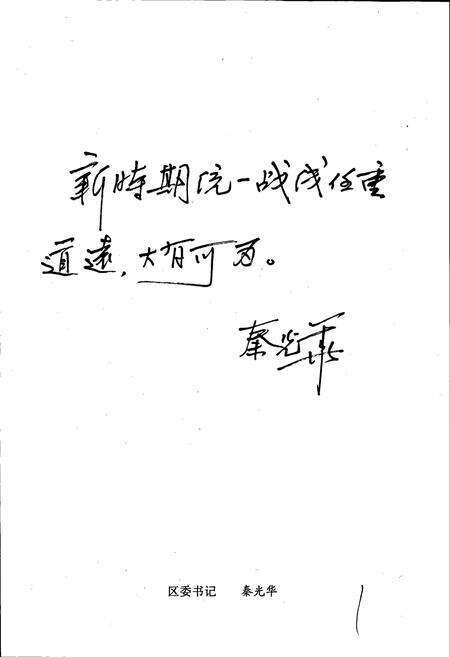 新时期统一战线任重
道远，大有可为。
秦光华
区委书记 秦光华